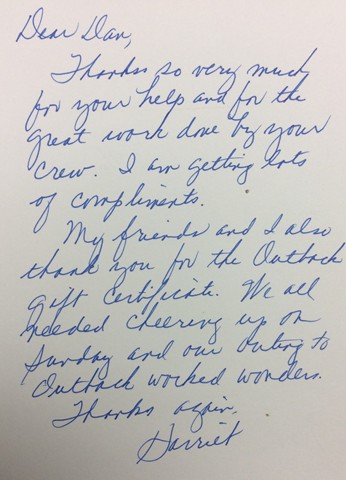 Dear Dan,
Thanks so very much
for your help and for the
great work done by your
crew. I am getting lots
of compliments.
My friends and I also
thank you for the Outback
gift certificate. We all
needed cheering up on
Sunday and our outing to
Outback worked wonders.
Thanks again,
Harriet